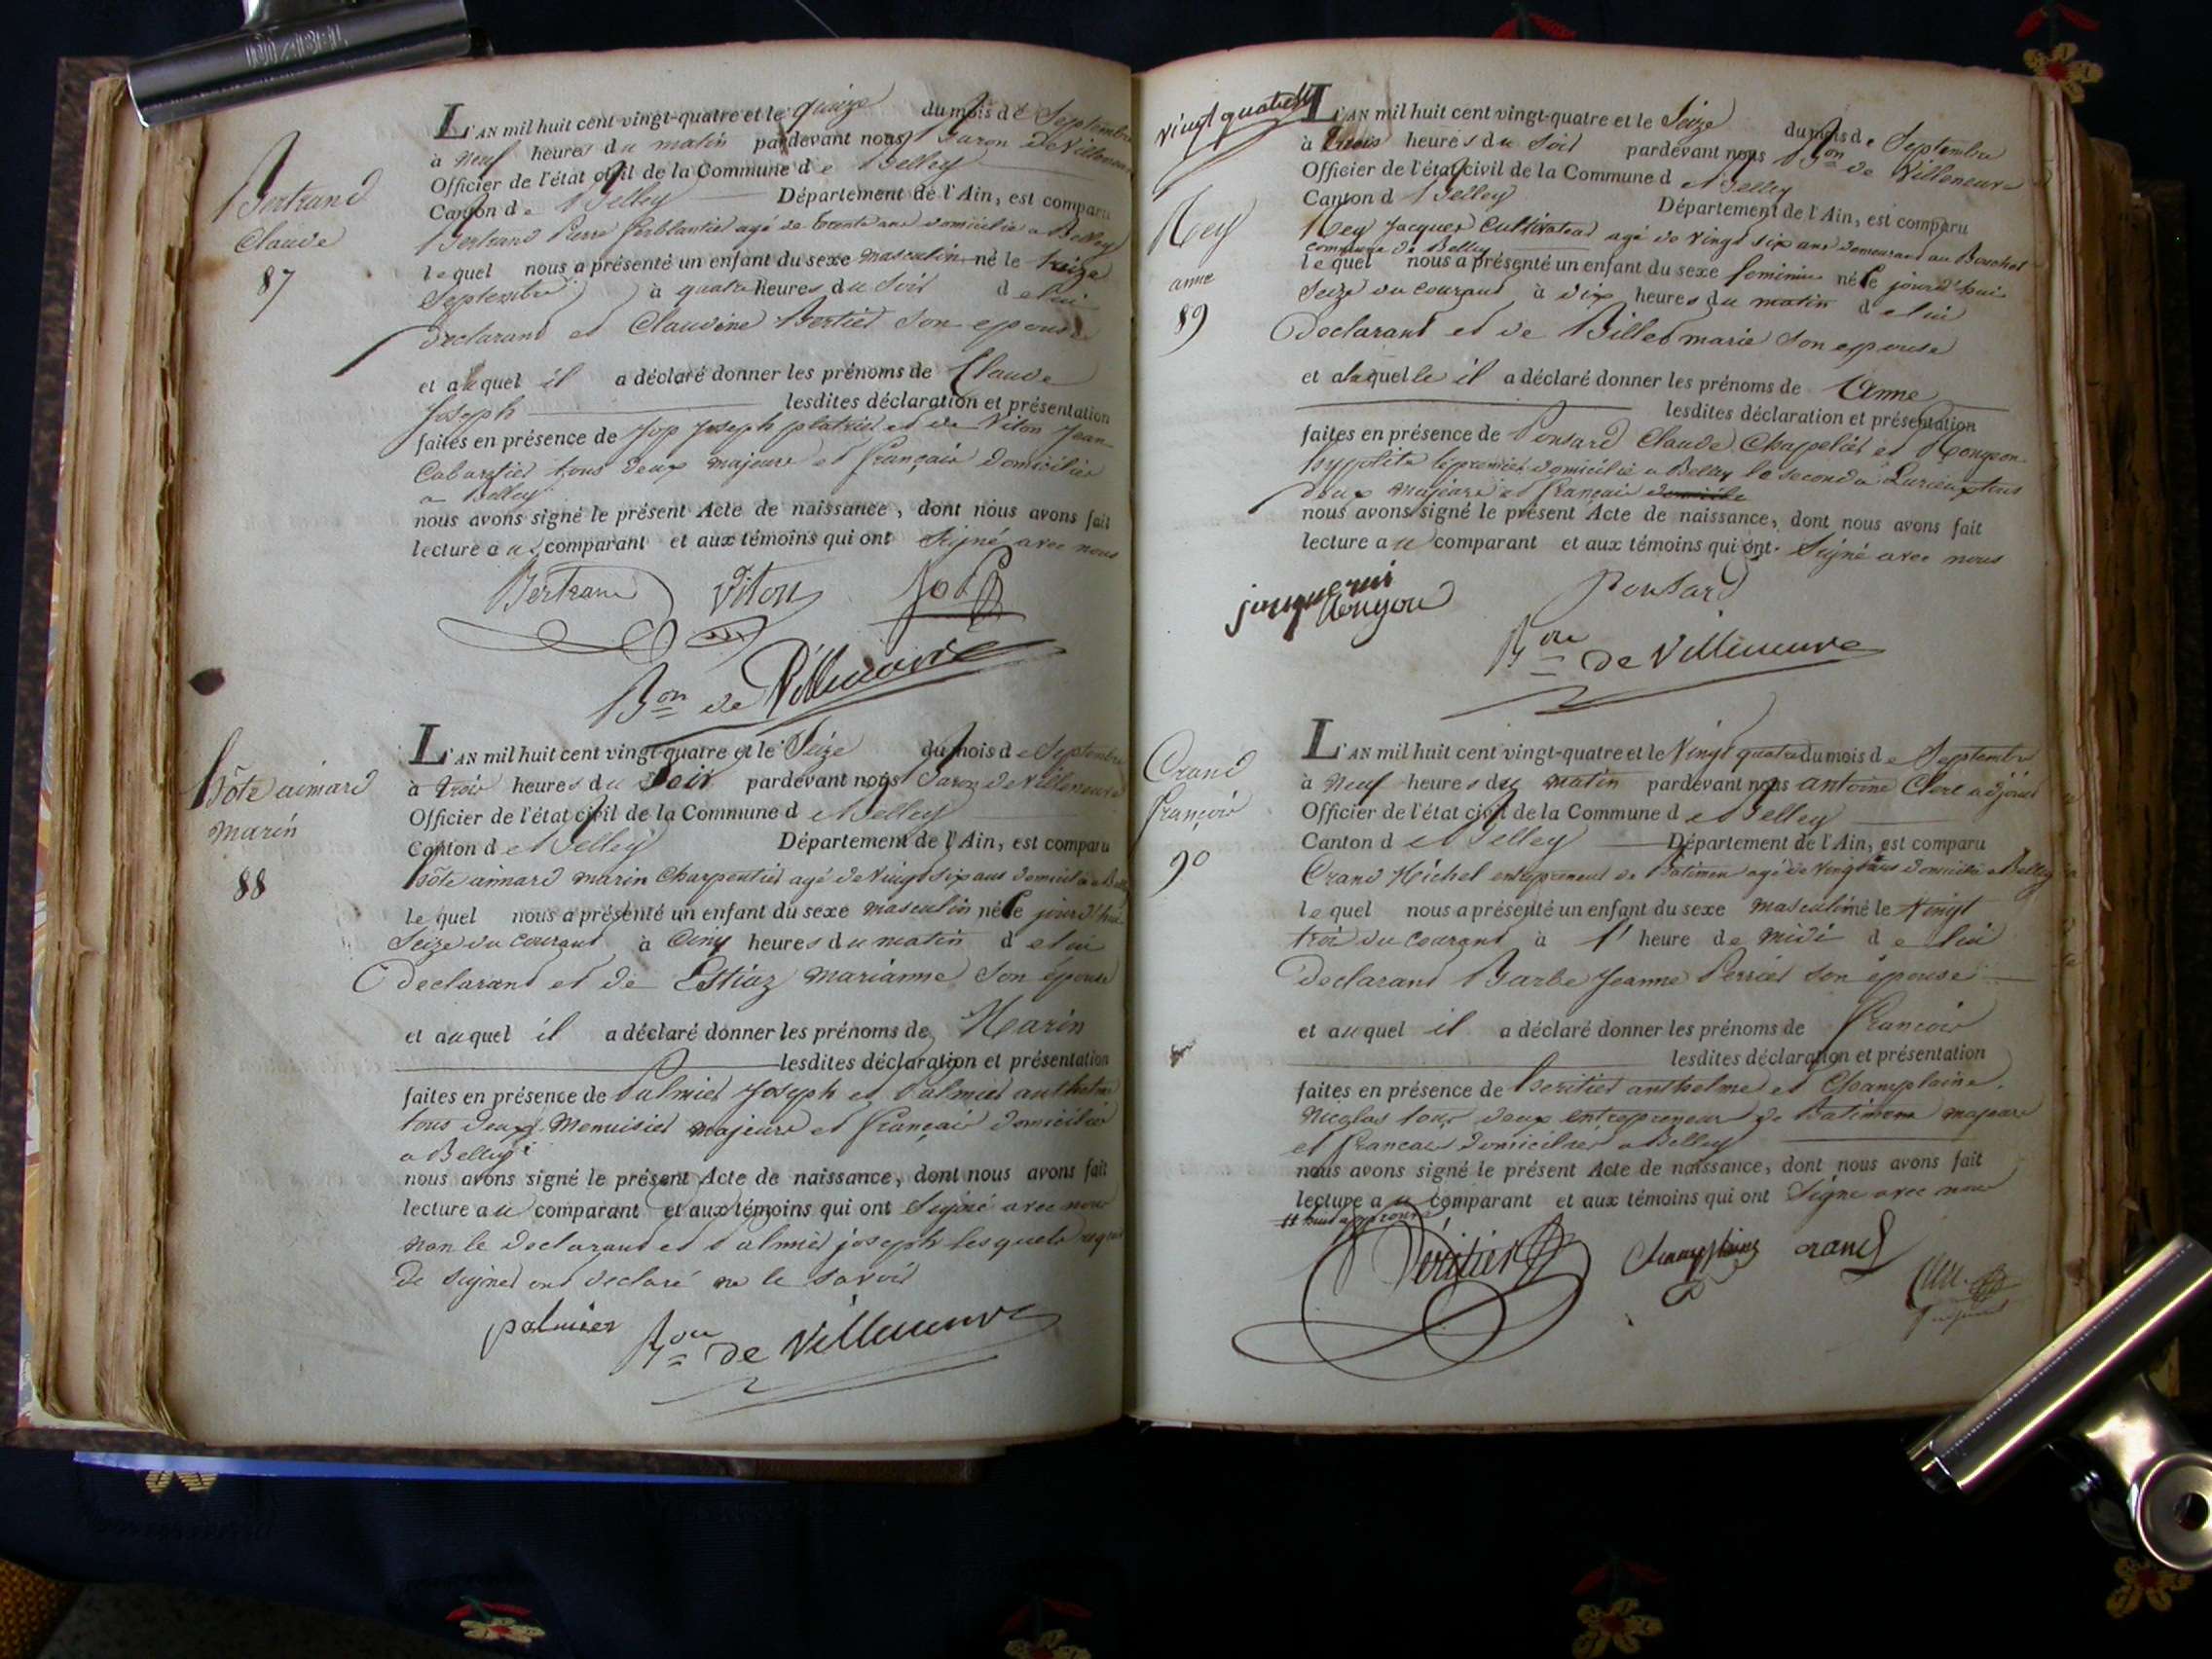 Bertrand
Claude
87
L'AN mil huit cent vingt-quatre et le quinze du mois de Septembre
à neuf heures du matin pardevant nous Baron de Villeneuve
Officier de l'état civil de la Commune de Belley
Canton de Belley Département de l'Ain, est comparu
Bertrand Pierre ferblantier agé de trente ans domicilié a Belley
lequel nous a présenté un enfant du sexe masculin né le treize
Septembre à quatre heures du Soir de lui
declarant et Claudine Bertier son epouse
et auquel il a déclaré donner les prénoms de Claude
Joseph lesdites déclaration et présentation
faites en présence de Jop Joseph platrier et de Viton Jean
Cabartier tous deux majeurs et français domicilier
a Belley
nous avons signé le présent Acte de naissance, dont nous avons fait
lecture au comparant et aux témoins qui ont Signé avec nous
Bertrand Viton Jop
Bon de Villeneuve
hôte aimard
marin
88
L'AN mil huit cent vingt-quatre et le Seize du mois de Septembre
à trois heures du Soir pardevant nous Baron de Villeneuve
Officier de l'état civil de la Commune de Belley
Canton de Belley Département de l'Ain, est comparu
hôte aimard marin Charpentier agé de Vingt Six ans domicilié a Belley
lequel nous a présenté un enfant du sexe masculin né le jourd'hui
Seize du courant à Cinq heures du matin de lui
Declarant et de Estiaz marianne son épouse
et auquel il a déclaré donner les prénoms de Marin
lesdites déclaration et présentation
faites en présence de Palmier Joseph et Palmier anthelme
tous deux Menuisier majeurs et français domicilier
a Belley
nous avons signé le présent Acte de naissance, dont nous avons fait
lecture au comparant et aux témoins qui ont Signé avec nous
non le declarant et Palmier joseph lesquels requis
de signer ont declaré ne le savoir
palmier Bon de Villeneuve
vingt quatre
Rey
anne
89
L'AN mil huit cent vingt-quatre et le Seize du mois de Septembre
à trois heures du Soir pardevant nous Bon de Villeneuve
Officier de l'état civil de la Commune de Belley
Canton d Belley Département de l'Ain, est comparu
Rey Jacques Cultivateur agé de vingt six ans demeurant au Bouchet
commune de Belley
lequel nous a présenté un enfant du sexe feminin né le jourd'hui
Seize du courant à dix heures du matin de lui
Declarant et de Billet marie son epouse
et alaquelle il a déclaré donner les prénoms de Anne
lesdites déclaration et présentation
faites en présence de Ponsard Claude Chapelier et
hypolite le premier domicilié a Belley le second a tous
deux majeurs et français domicile
nous avons signé le présent Acte de naissance, dont nous avons fait
lecture au comparant et aux témoins qui ont Signé avec nous
Ponsard
Bon de Villeneuve
Crand
françois
90
L'AN mil huit cent vingt-quatre et le Vingt quatre du mois de Septembre
à neuf heures du matin pardevant nous antoine Clerc adjoint
Officier de l'état civil de la Commune de Belley
Canton de Belley Département de l'Ain, est comparu
Crand Michel entrepreneur de Batimen agé de Vingt ans domicilié a Belley
lequel nous a présenté un enfant du sexe masculin né le Vingt
trois du courant à l' heure de midi de lui
Declarant Barbe Jeanne Perrier son épouse
et auquel il a déclaré donner les prénoms de françois
lesdites déclaration et présentation
faites en présence de heritier anthelme et Champlaine
Nicolas tous deux entrepreneur de Batimens majeurs
et francais domicilier a Belley
nous avons signé le présent Acte de naissance, dont nous avons fait
lecture au comparant et aux témoins qui ont Signé avec nous
heritier Champlaine crand